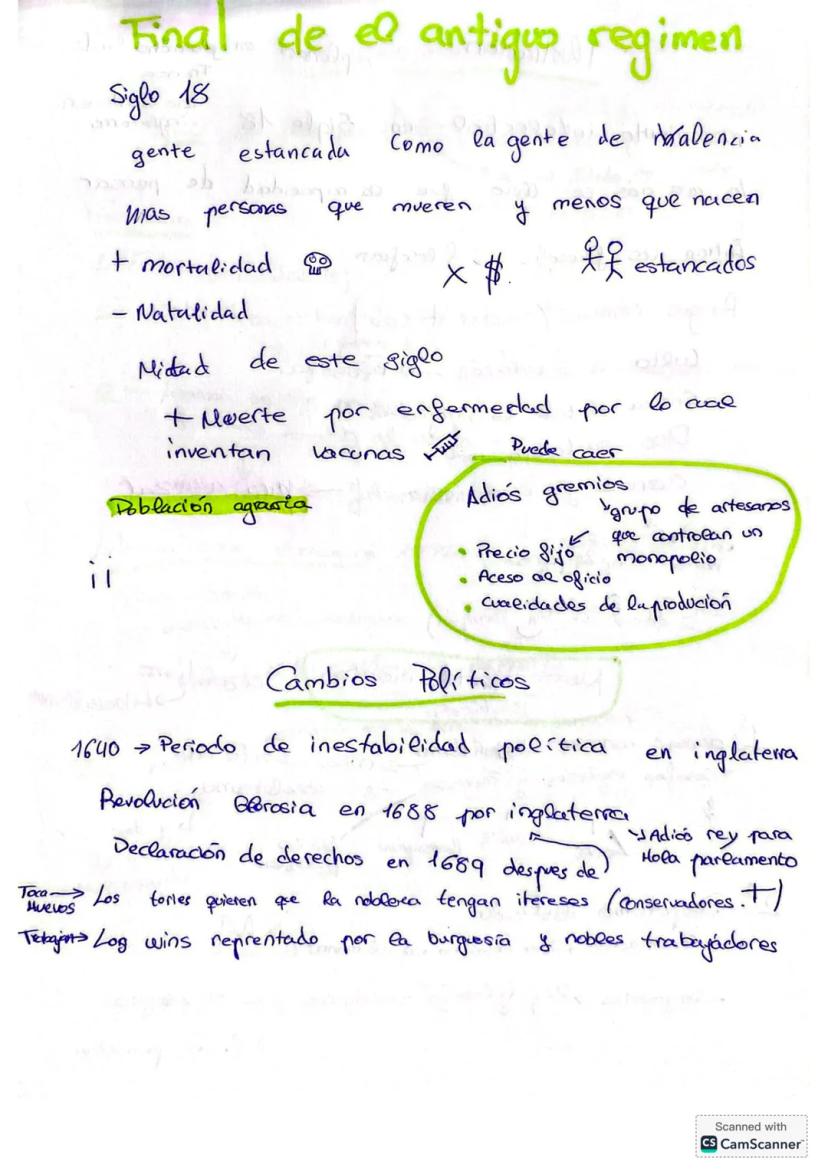 Final de el antiguo regimen
Siglo 18
gente estancada como la gente de Valencia
mas personas que mueren y menos que nacen
+ mortalidad
x $.
estancados
- Natalidad
Mitad de este siglo
+ Muerte por enfermedad por lo cual
inventan vacunas
Puede caer
Población agraria
Adiós gremios
↘grupo de artesanos
que controlan un
monopolio
• Precio fijo
• Aceso al oficio
• cualidades de la produción
¡¡
Cambios Políticos
1640 → Periodo de inestabilidad política en inglaterra
Revolución Glorosia en 1688 por inglaterra
↘Adiós rey para
Hola parlamento
Declaración de derechos en 1689 despues de
Toca Huevos → Los tories quieren que la nobleza tengan itereses (conservadores.+)
→ Los wins reprentado por la burguesía y nobles trabajádores
Scanned with
CS CamScanner